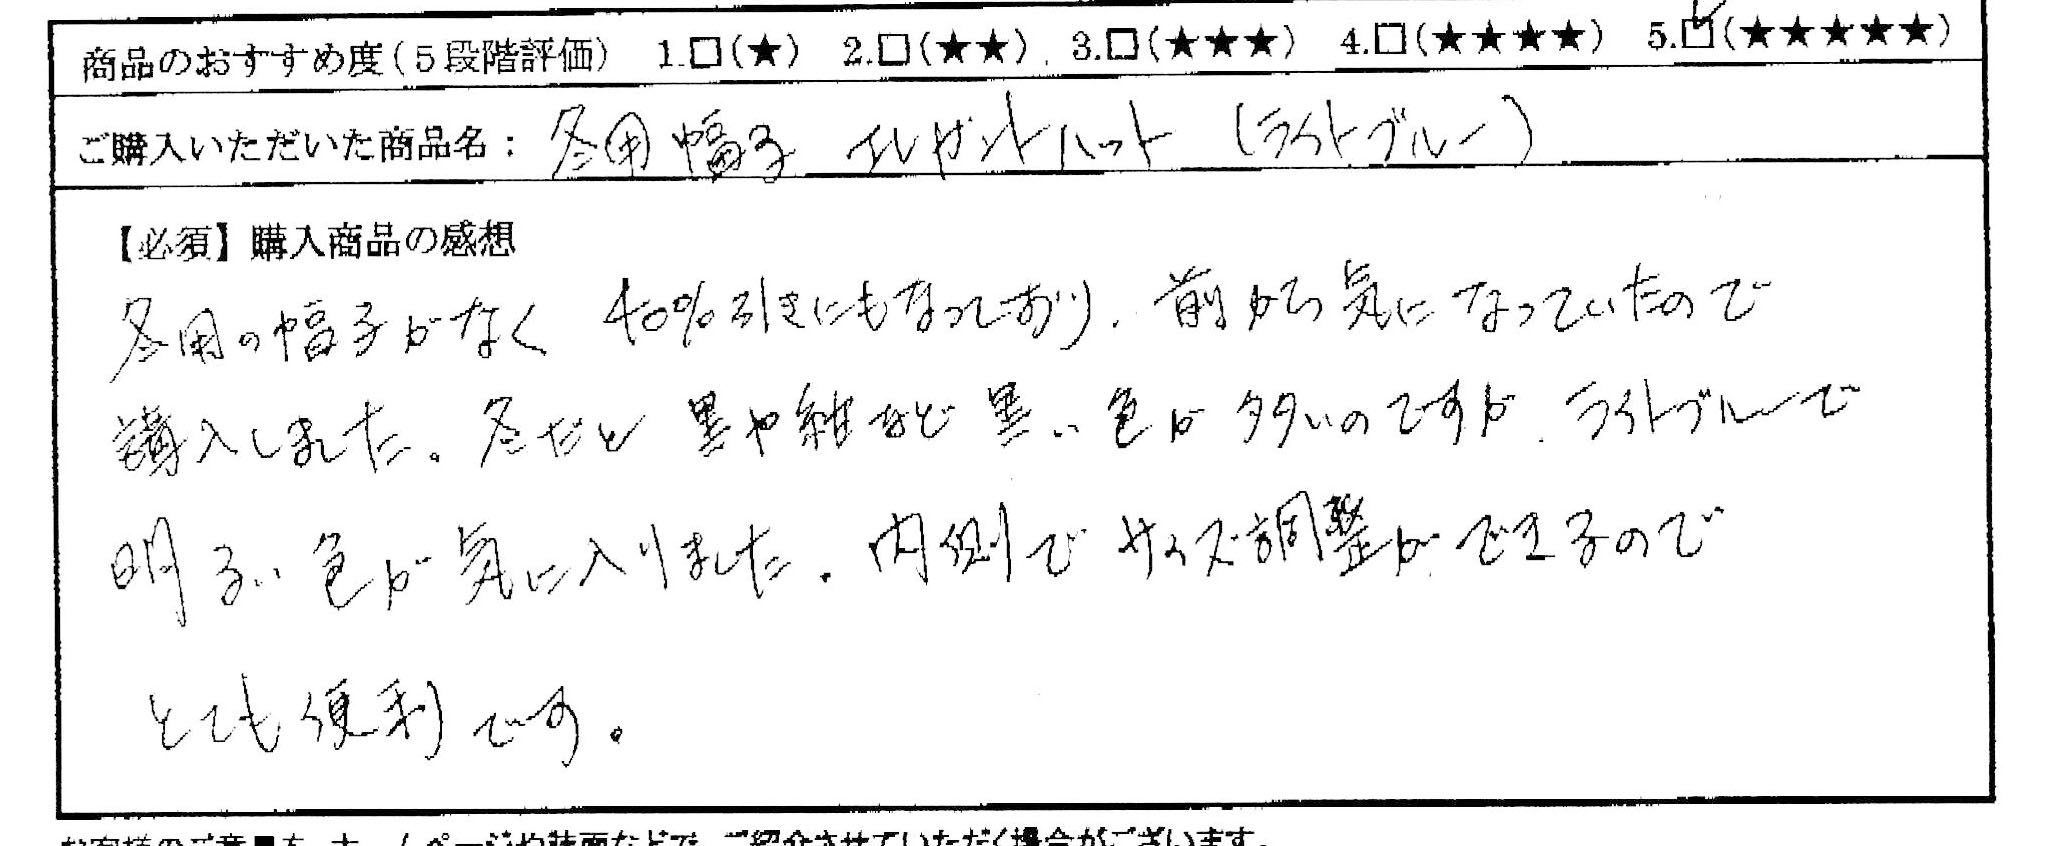 商品のおすすめ度(5段階評価) 1.□(★) 2.□(★★) 3.□(★★★) 4.□(★★★★) 5.☑(★★★★★)
ご購入いただいた商品名： 冬用帽子 エレガントハット (ライトブルー)
【必須】購入商品の感想
冬用の帽子がなく 40%引きにもなっており、前から気になっていたので
購入しました。冬だと黒や紺など黒い色が多いのですが、ライトブルーで
明るい色が気に入りました。内側でサイズ調整ができるので
とても便利です。
お客様のご意見を、ホームページや誌面などで、ご紹介させていただく場合がございます。